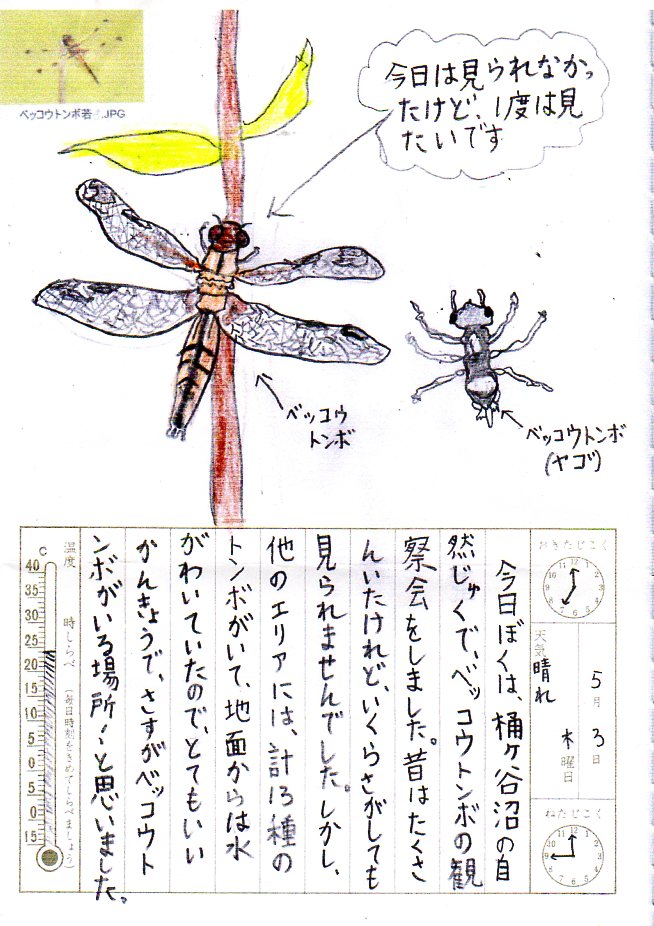 ベッコウトンボ若 .JPG
今日は見られなかっ
たけど、1度は見
たいです
ベッコウ
トンボ
ベッコウトンボ
(ヤゴ)
おきたじこく
12 1 2 3 4 5 6 7 8 9 10 11
5月3日
木曜日
天気 晴れ
ねたじこく
12 1 2 3 4 5 6 7 8 9 10 11
今日ぼくは、桶ヶ谷沼の自
然じゅくで、ベッコウトンボの観
察会をしました。昔はたくさ
んいたけれど、いくらさがしても
見られませんでした。しかし、
他のエリアには、計13種の
トンボがいて、地面からは水
がわいていたので、とてもいい
かんきょうで、さすがベッコウト
ンボがいる場所!と思いました。
温度 時しらべ (毎日時刻をきめてしらべましょう)
C
40
35
30
25
20
15
10
5
0
5
10
15